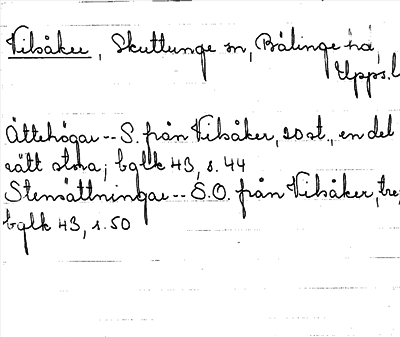 Vilsåker, Skuttunge sn, Bälinge hd,
Upps.l
Ättehögar -- S. från Vilsåker, 20 st., en del
rätt stora; bglk 43, s. 44
Stensättningar -- S.O. från Vilsåker, tre;
bglk 43, s. 50